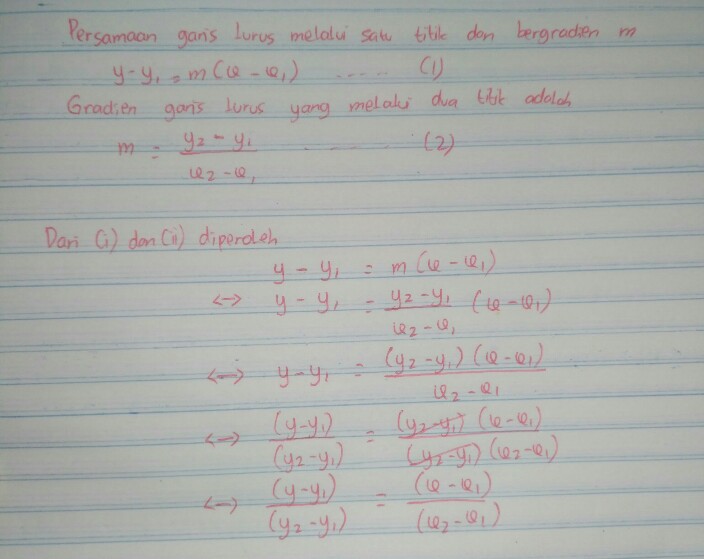 Persamaan garis lurus melalui satu titik dan bergradien m
y - y₁ = m (x - x₁) ..... (1)
Gradien garis lurus yang melalui dua titik adalah
m = (y₂ - y₁)/(x₂ - x₁) ........ (2)
Dari (i) dan (ii) diperoleh
y - y₁ = m (x - x₁)
<-> y - y₁ = (y₂ - y₁)/(x₂ - x₁) (x - x₁)
<-> y - y₁ = (y₂ - y₁)(x - x₁)/(x₂ - x₁)
<-> (y - y₁)/(y₂ - y₁) = (y₂ - y₁)(x - x₁)/(y₂ - y₁)(x₂ - x₁)
<-> (y - y₁)/(y₂ - y₁) = (x - x₁)/(x₂ - x₁)